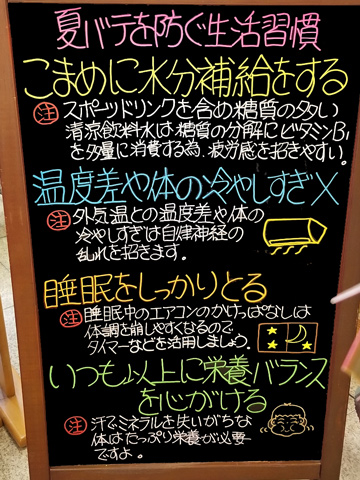 夏バテを防ぐ生活習慣
こまめに水分補給をする
注 スポーツドリンクを含め糖質の多い
清涼飲料水は糖質の分解にビタミンB₁
を多量に消費する為、疲労感を招きやすい。
温度差や体の冷やしすぎ×
注 外気温との温度差や体の
冷やしすぎは自律神経の
乱れを招きます。
睡眠をしっかりとる
注 睡眠中のエアコンのかけっぱなしは
体調を崩しやすくなるので
タイマーなどを活用しましょう。
いつも以上に栄養バランス
を心がける
注 汗でミネラルを失いがちな
体はたっぷり栄養が必要
ですよ。